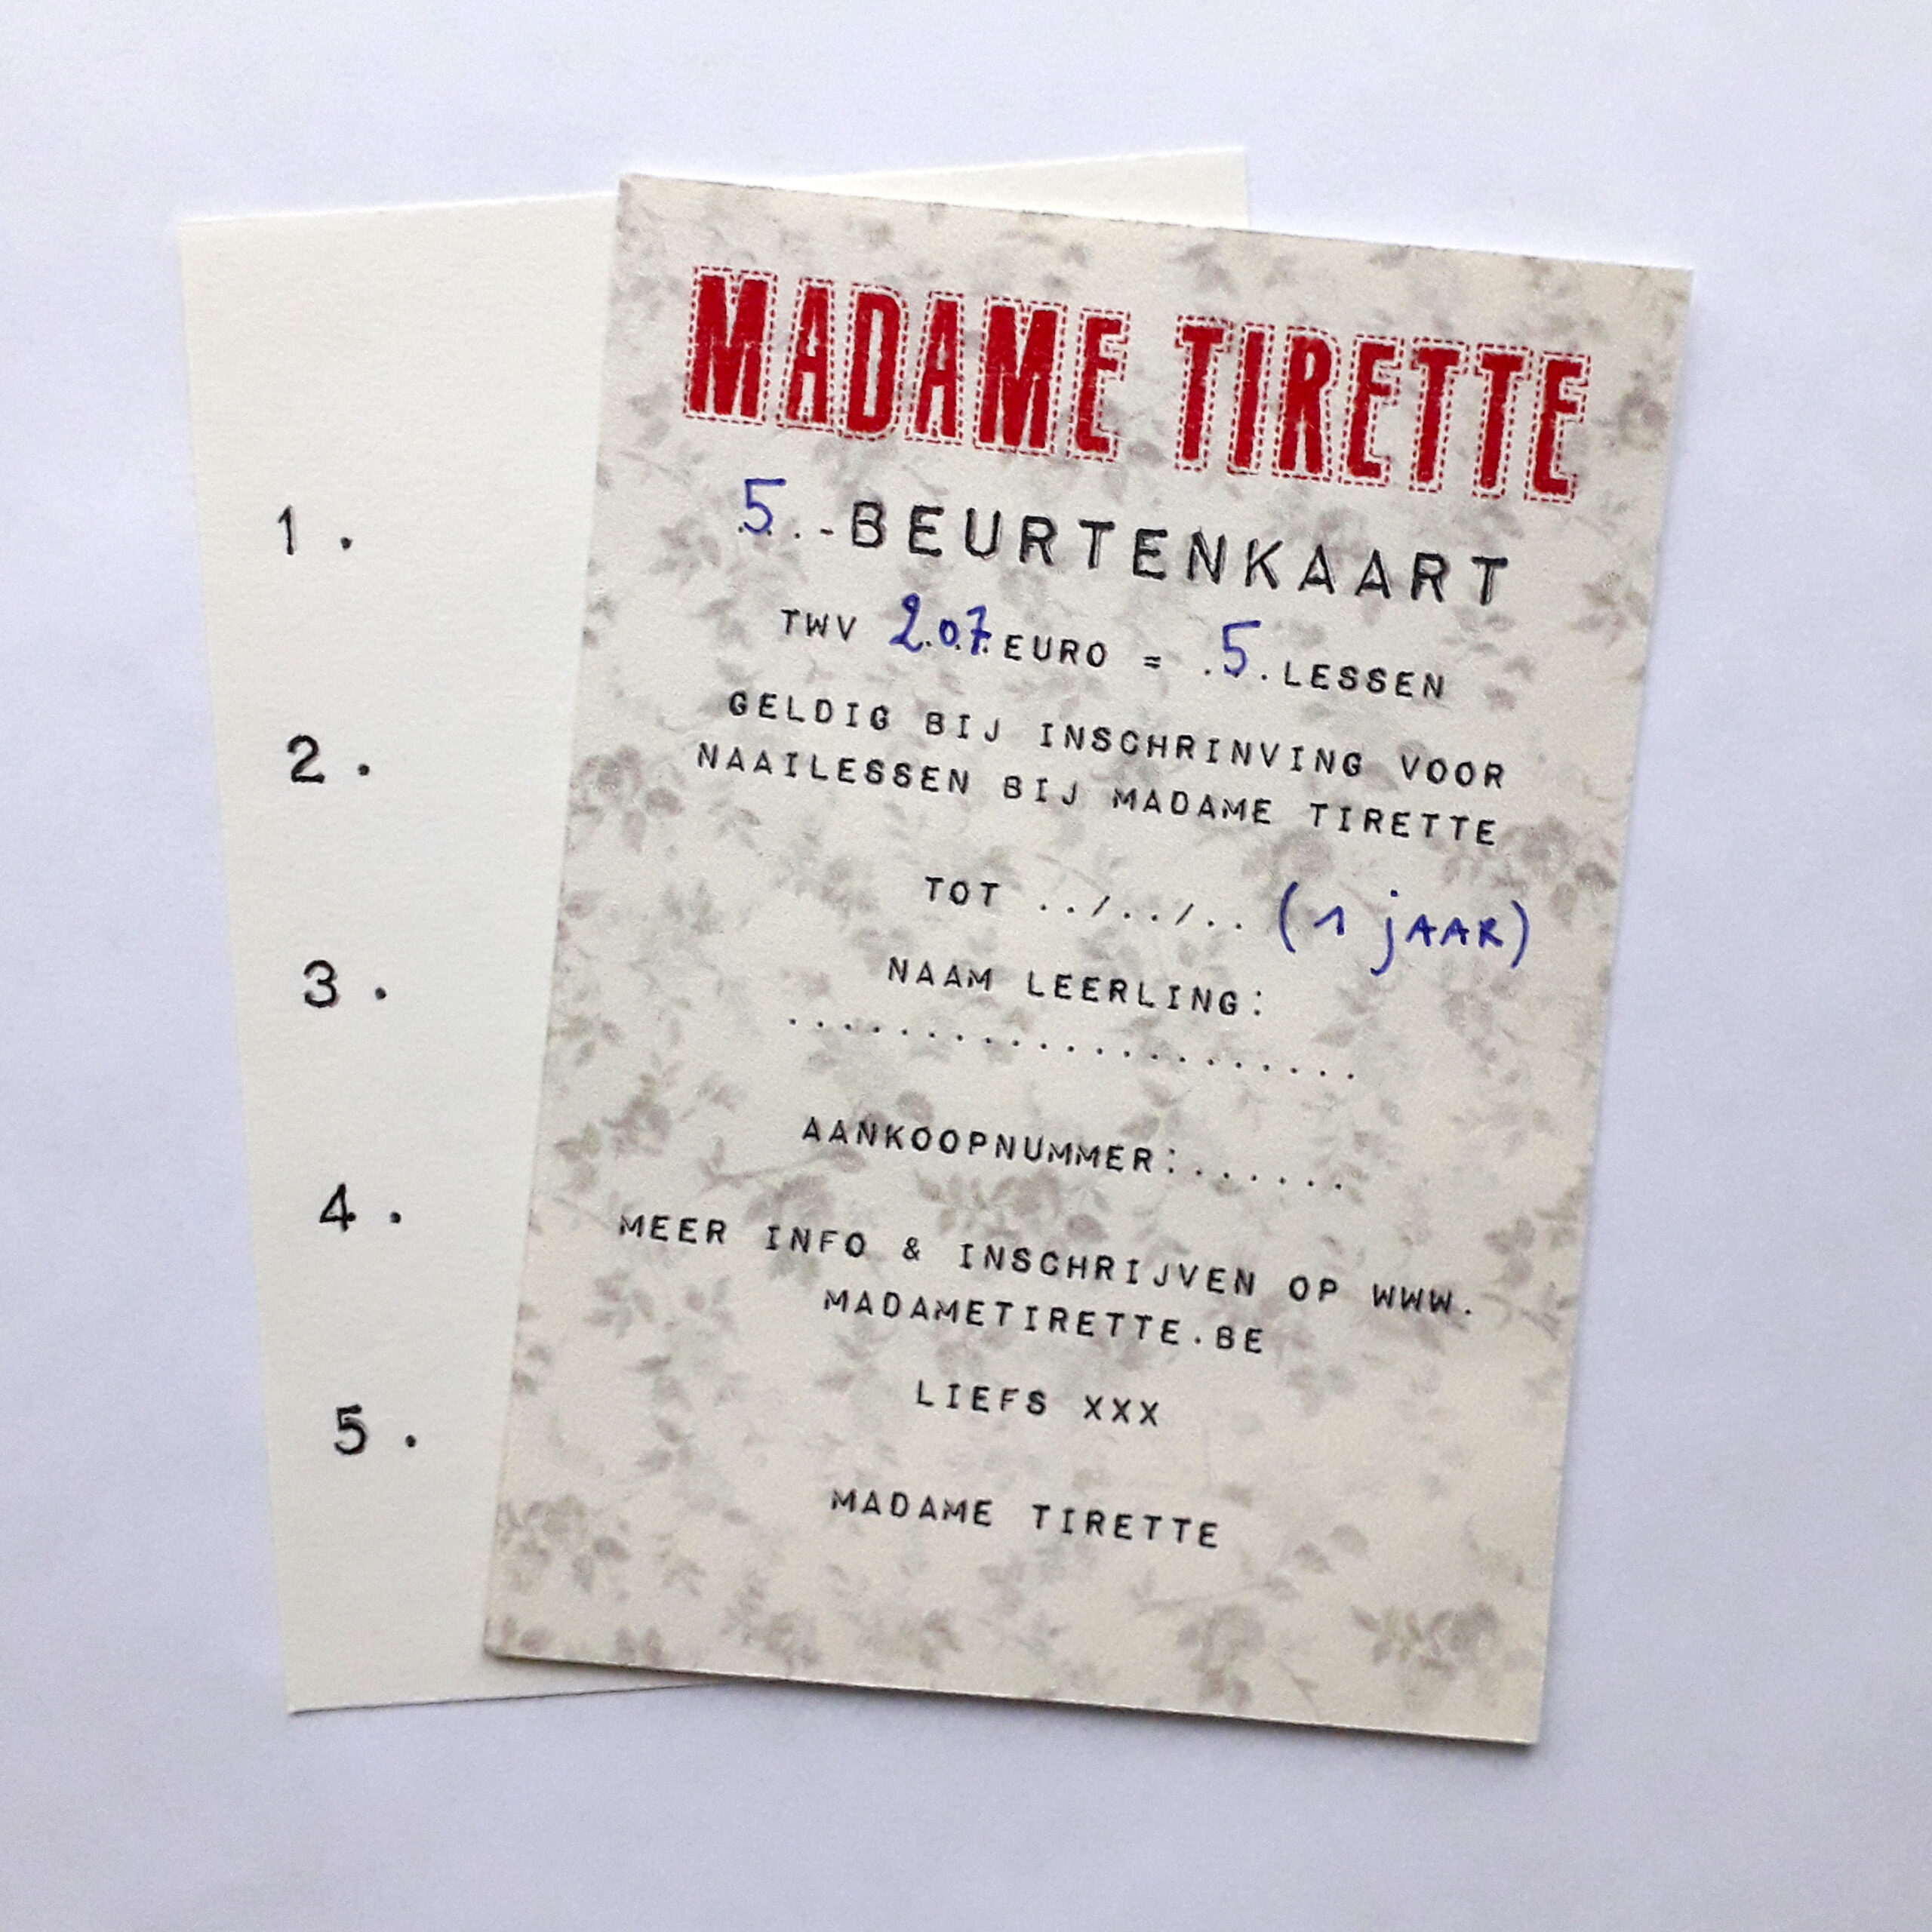 1.
2.
3.
4.
5.
MADAME TIRETTE
5..-BEURTENKAART
TWV 207 EURO = .5. LESSEN
GELDIG BIJ INSCHRINVING VOOR
NAAILESSEN BIJ MADAME TIRETTE
TOT ../../.. (1 jAAR)
NAAM LEERLING:
.....................
AANKOOPNUMMER:......
MEER INFO & INSCHRIJVEN OP WWW.
MADAMETIRETTE.BE
LIEFS XXX
MADAME TIRETTE